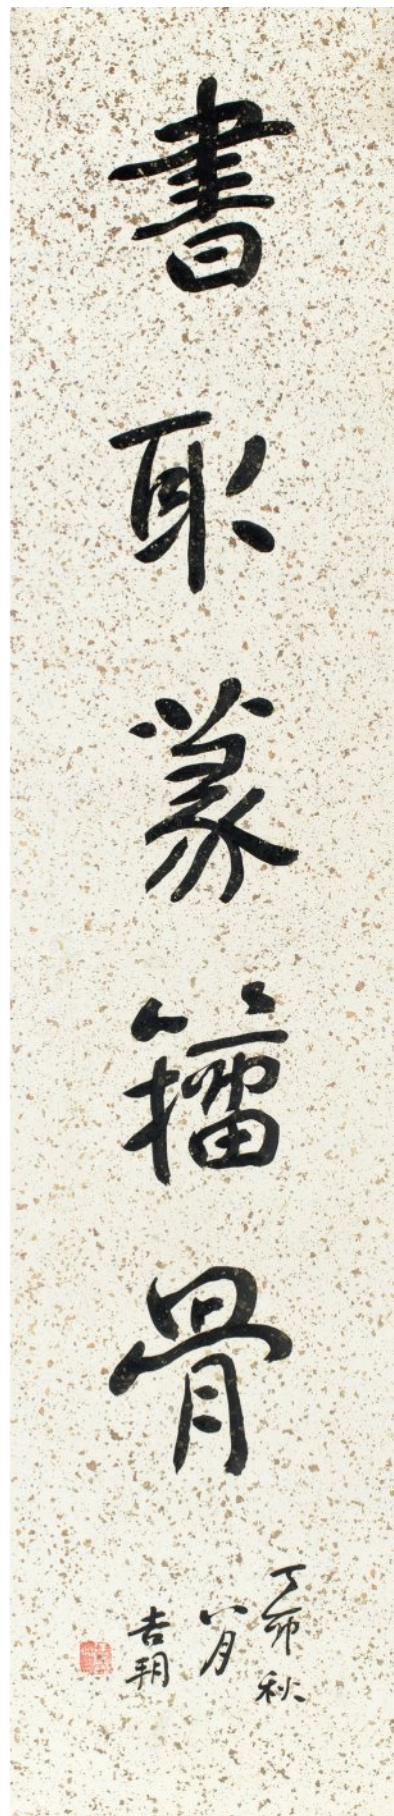 書取篆籀骨
丁卯秋
八月
吉